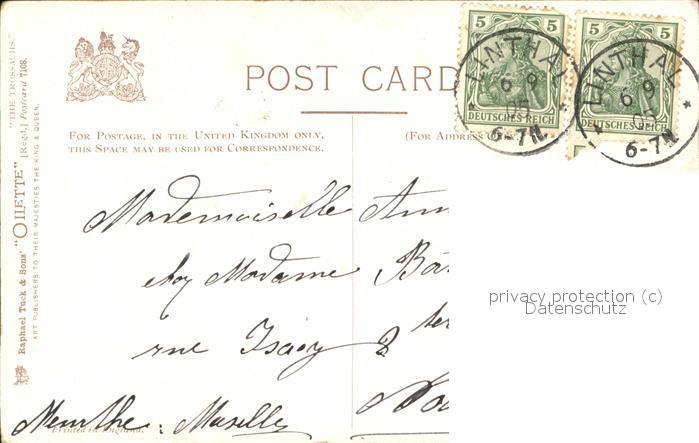 "THE TROSSACHS."
Raphael Tuck & Sons' "OILETTE" [Regd.] Postcard 7108.
ART PUBLISHERS TO THEIR MAJESTIES THE KING & QUEEN.
POST CARD
5 5
DEUTSCHES REICH
LINTHAL
6 9
05
6-7N.
5 5
DEUTSCHES REICH
LINTHAL
6 9
05
6-7N.
FOR POSTAGE, IN THE UNITED KINGDOM ONLY,
THIS SPACE MAY BE USED FOR CORRESPONDENCE.
(FOR ADDRESS
Mademoiselle Ann
chez Madame
rue Isaey 8 ter
Meurthe: Moselle
Printed in England.
privacy protection (c)
Datenschutz